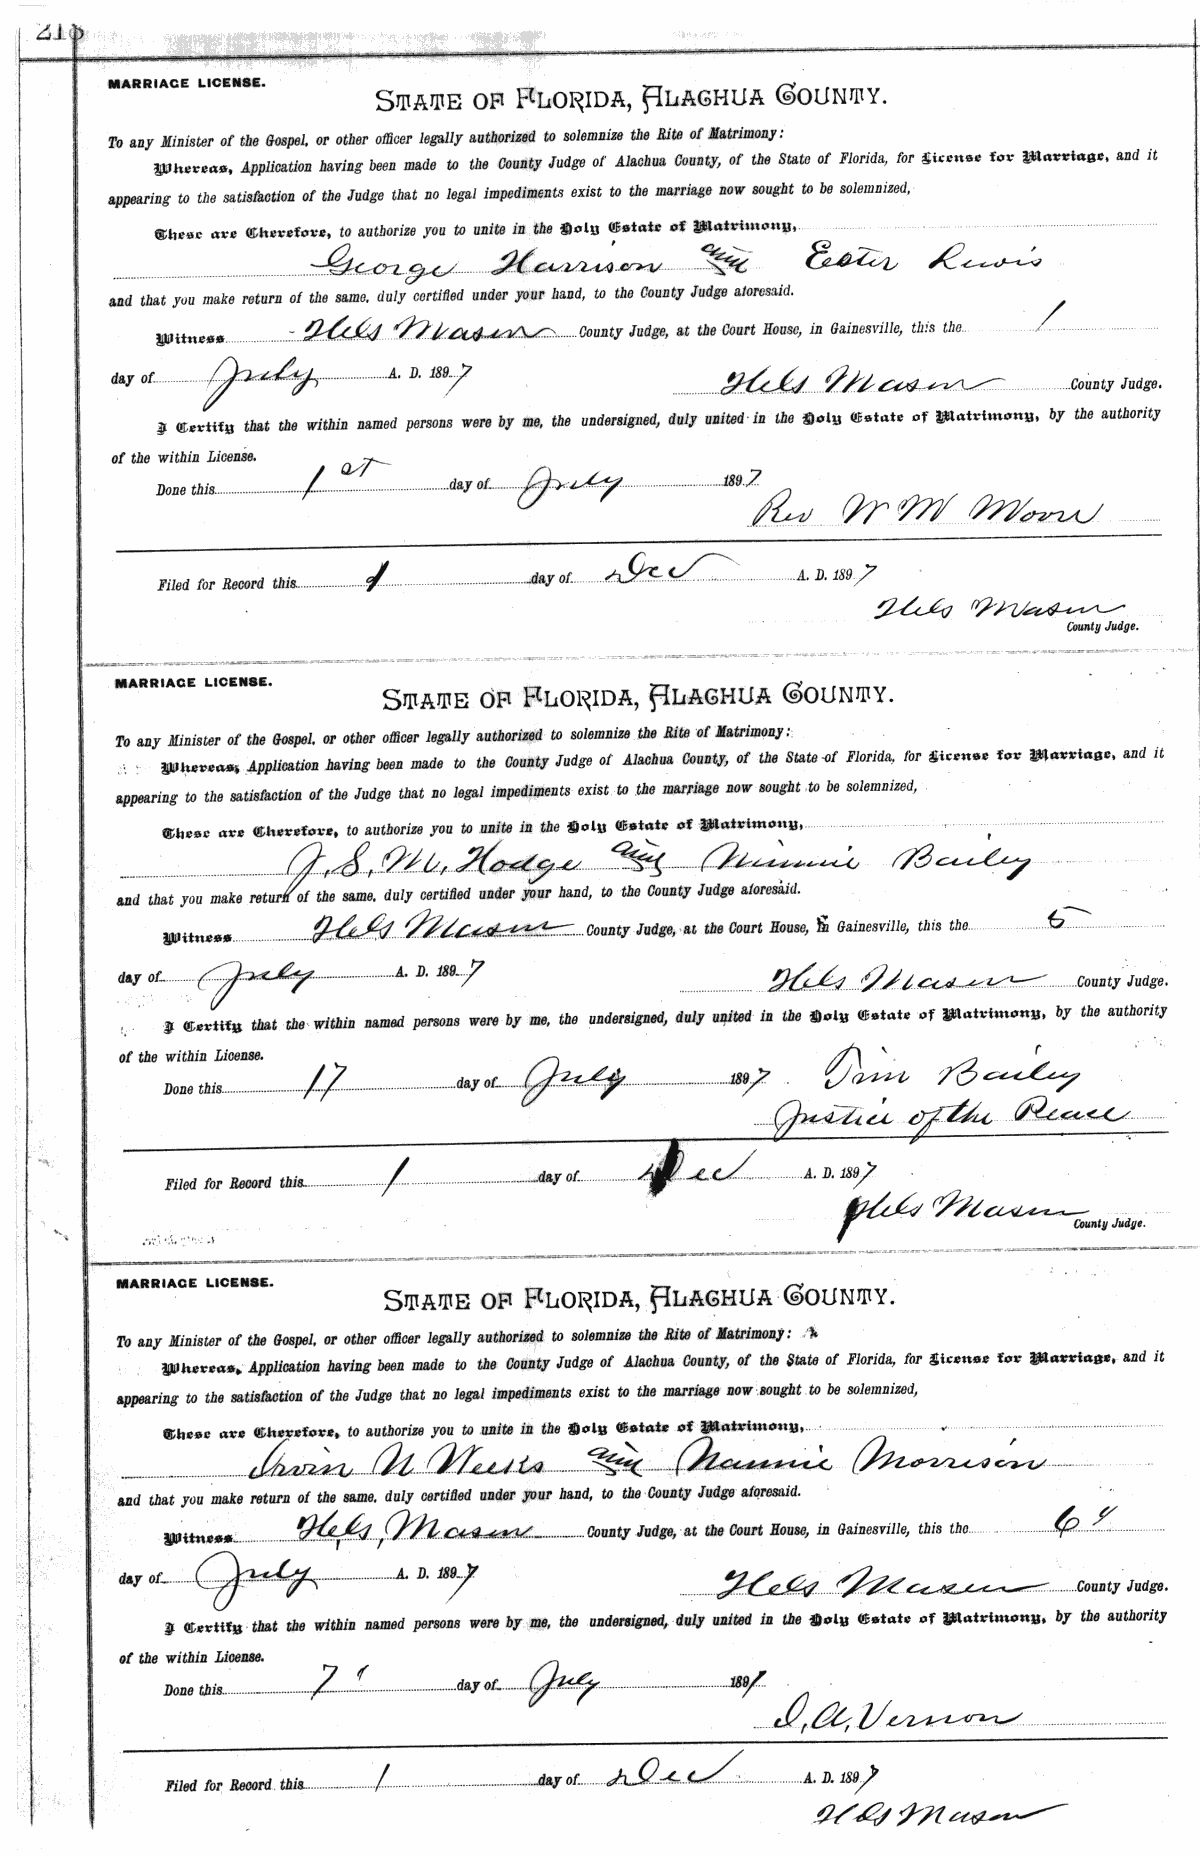 218
MARRIAGE LICENSE.
STATE OF FLORIDA, ALACHUA COUNTY.
To any Minister of the Gospel, or other officer legally authorized to solemnize the Rite of Matrimony:
Whereas, Application having been made to the County Judge of Alachua County, of the State of Florida, for License for Marriage, and it
appearing to the satisfaction of the Judge that no legal impediments exist to the marriage now sought to be solemnized,
These are Therefore, to authorize you to unite in the Holy Estate of Matrimony,
George Harrison and Ester Lewis
and that you make return of the same, duly certified under your hand, to the County Judge aforesaid.
Witness Hels Mason County Judge, at the Court House, in Gainesville, this the 1
day of July A. D. 1897 Hels Mason County Judge.
I Certify that the within named persons were by me, the undersigned, duly united in the Holy Estate of Matrimony, by the authority
of the within License.
Done this 1st day of July 1897
Rev W M Moore
Filed for Record this 1 day of Dec A. D. 1897
Hels Mason
County Judge.
MARRIAGE LICENSE.
STATE OF FLORIDA, ALACHUA COUNTY.
To any Minister of the Gospel, or other officer legally authorized to solemnize the Rite of Matrimony:
Whereas, Application having been made to the County Judge of Alachua County, of the State of Florida, for License for Marriage, and it
appearing to the satisfaction of the Judge that no legal impediments exist to the marriage now sought to be solemnized,
These are Therefore, to authorize you to unite in the Holy Estate of Matrimony,
J. S. M. Hodge and Minnie Bailey
and that you make return of the same, duly certified under your hand, to the County Judge aforesaid.
Witness Hels Mason County Judge, at the Court House, in Gainesville, this the 5
day of July A. D. 1897 Hels Mason County Judge.
I Certify that the within named persons were by me, the undersigned, duly united in the Holy Estate of Matrimony, by the authority
of the within License.
Done this 17 day of July 1897 Tim Bailey
Justice of the Peace
Filed for Record this 1 day of Dec A. D. 1897
Hels Mason
County Judge.
MARRIAGE LICENSE.
STATE OF FLORIDA, ALACHUA COUNTY.
To any Minister of the Gospel, or other officer legally authorized to solemnize the Rite of Matrimony:
Whereas, Application having been made to the County Judge of Alachua County, of the State of Florida, for License for Marriage, and it
appearing to the satisfaction of the Judge that no legal impediments exist to the marriage now sought to be solemnized,
These are Therefore, to authorize you to unite in the Holy Estate of Matrimony,
Irvin N Weeks and Nannie Morrison
and that you make return of the same, duly certified under your hand, to the County Judge aforesaid.
Witness Hels Mason County Judge, at the Court House, in Gainesville, this the 6
day of July A. D. 1897 Hels Mason County Judge.
I Certify that the within named persons were by me, the undersigned, duly united in the Holy Estate of Matrimony, by the authority
of the within License.
Done this 7 day of July 1897
I. A. Vernon
Filed for Record this 1 day of Dec A. D. 1897
Hels Mason